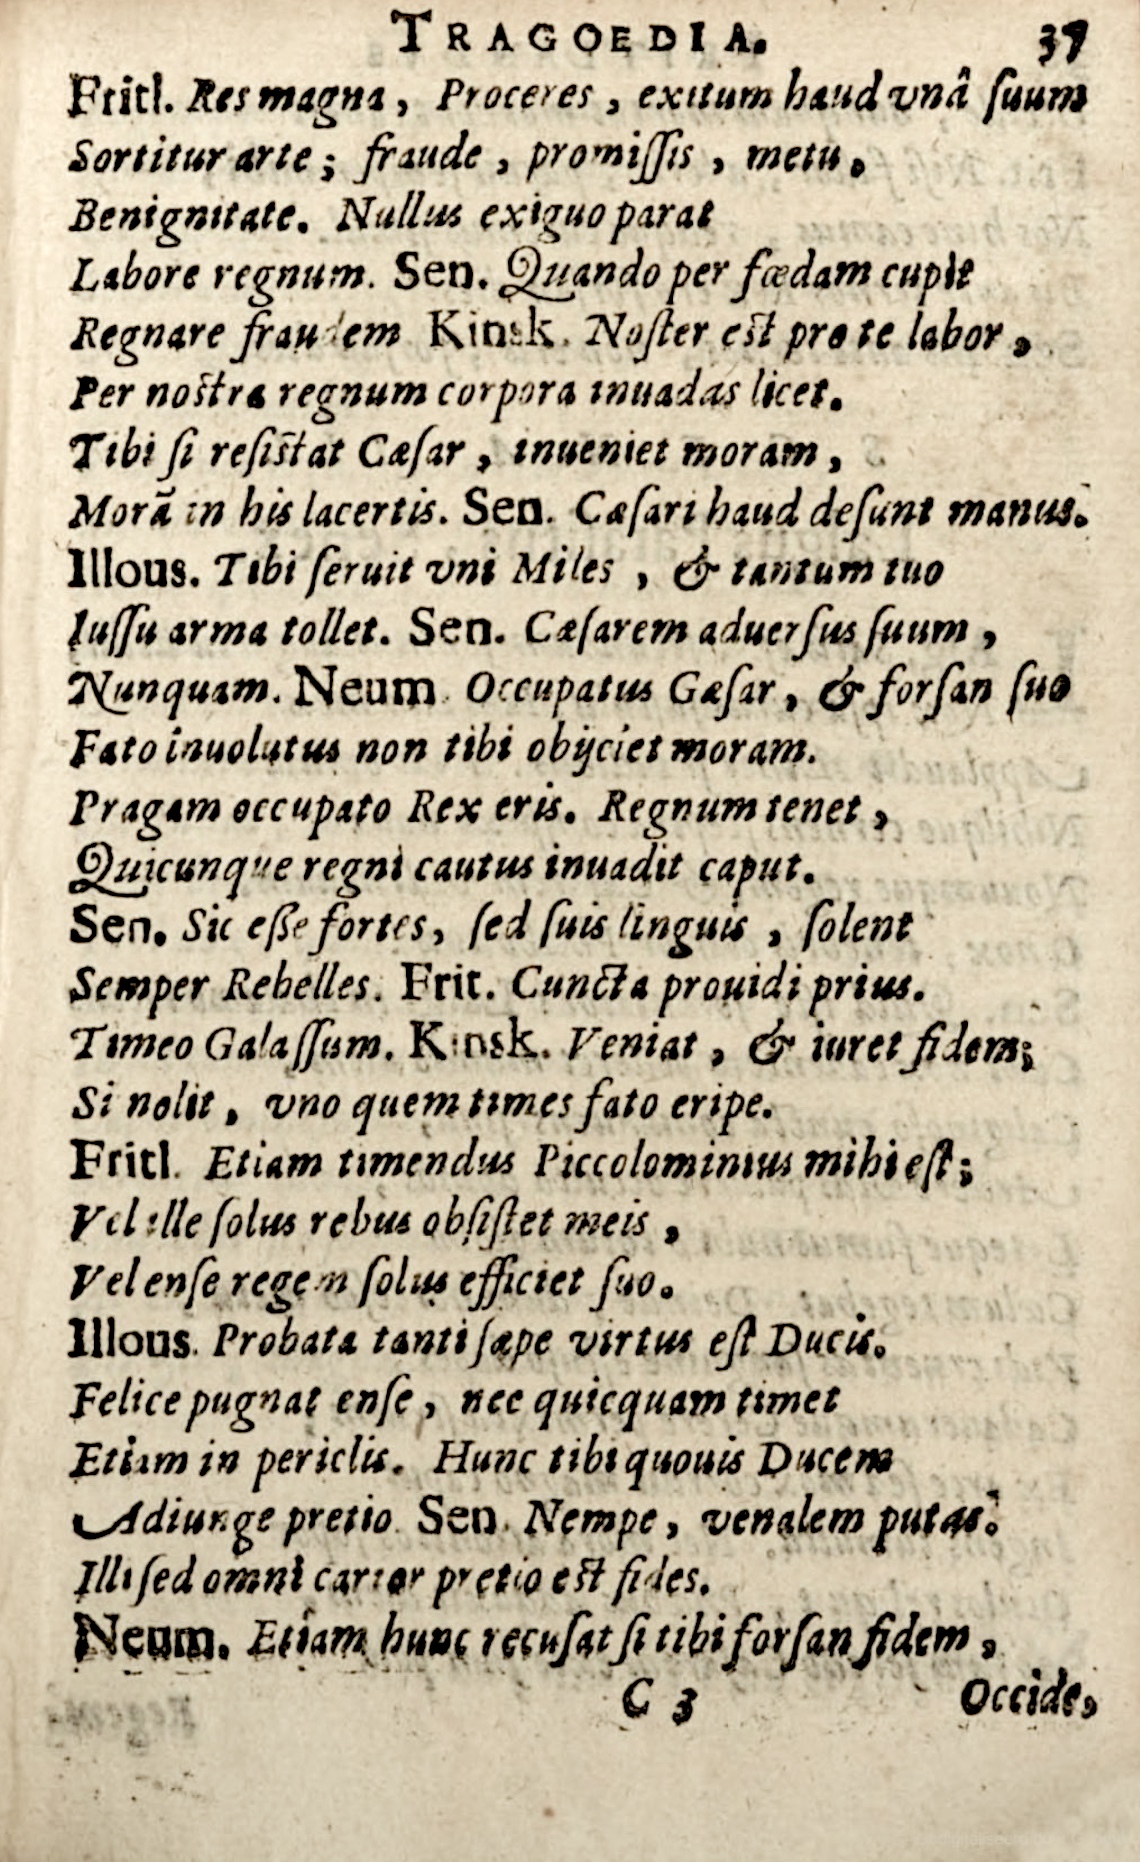 TRAGOEDIA. 37
Fritl. Res magna, Proceres, exitum haud vnâ ſuum
Sortitur arte; fraude, promiſſis, metu,
Benignitate. Nullus exiguo parat
Labore regnum. Sen. Quando per fœdam cupit
Regnare fraudem Kinsk. Noſter eſt pro te labor,
Per noſtra regnum corpora inuadas licet.
Tibi ſi reſiſtat Cæſar, inueniet moram,
Morã in his lacertis. Sen. Cæſari haud deſunt manus.
Illous. Tibi ſeruit vni Miles, & tantum tuo
Iuſſu arma tollet. Sen. Cæſarem aduerſus ſuum,
Nunquam. Neum. Occupatus Cæſar, & forſan ſuo
Fato inuolutus non tibi obijciet moram.
Pragam occupato Rex eris. Regnum tenet,
Quicunque regni cautus inuadit caput.
Sen. Sic eſſe fortes, ſed ſuis linguis, ſolent
Semper Rebelles. Frit. Cuncta prouidi prius.
Timeo Galaſſum. Kinsk. Veniat, & iuret fidem;
Si nolit, vno quem times fato eripe.
Fritl. Etiam timendus Piccolominius mihi eſt;
Vel ille ſolus rebus obſiſtet meis,
Vel enſe regem ſolus efficiet ſuo.
Illous. Probata tanti ſæpe virtus eſt Ducis.
Felice pugnat enſe, nec quicquam timet
Etiam in periclis. Hunc tibi quouis Ducem
Adiunge pretio. Sen. Nempe, venalem putas?
Illi ſed omni carior pretio eſt fides.
Neum. Etiam hunc recuſat ſi tibi forſan fidem,
C 3 Occide,